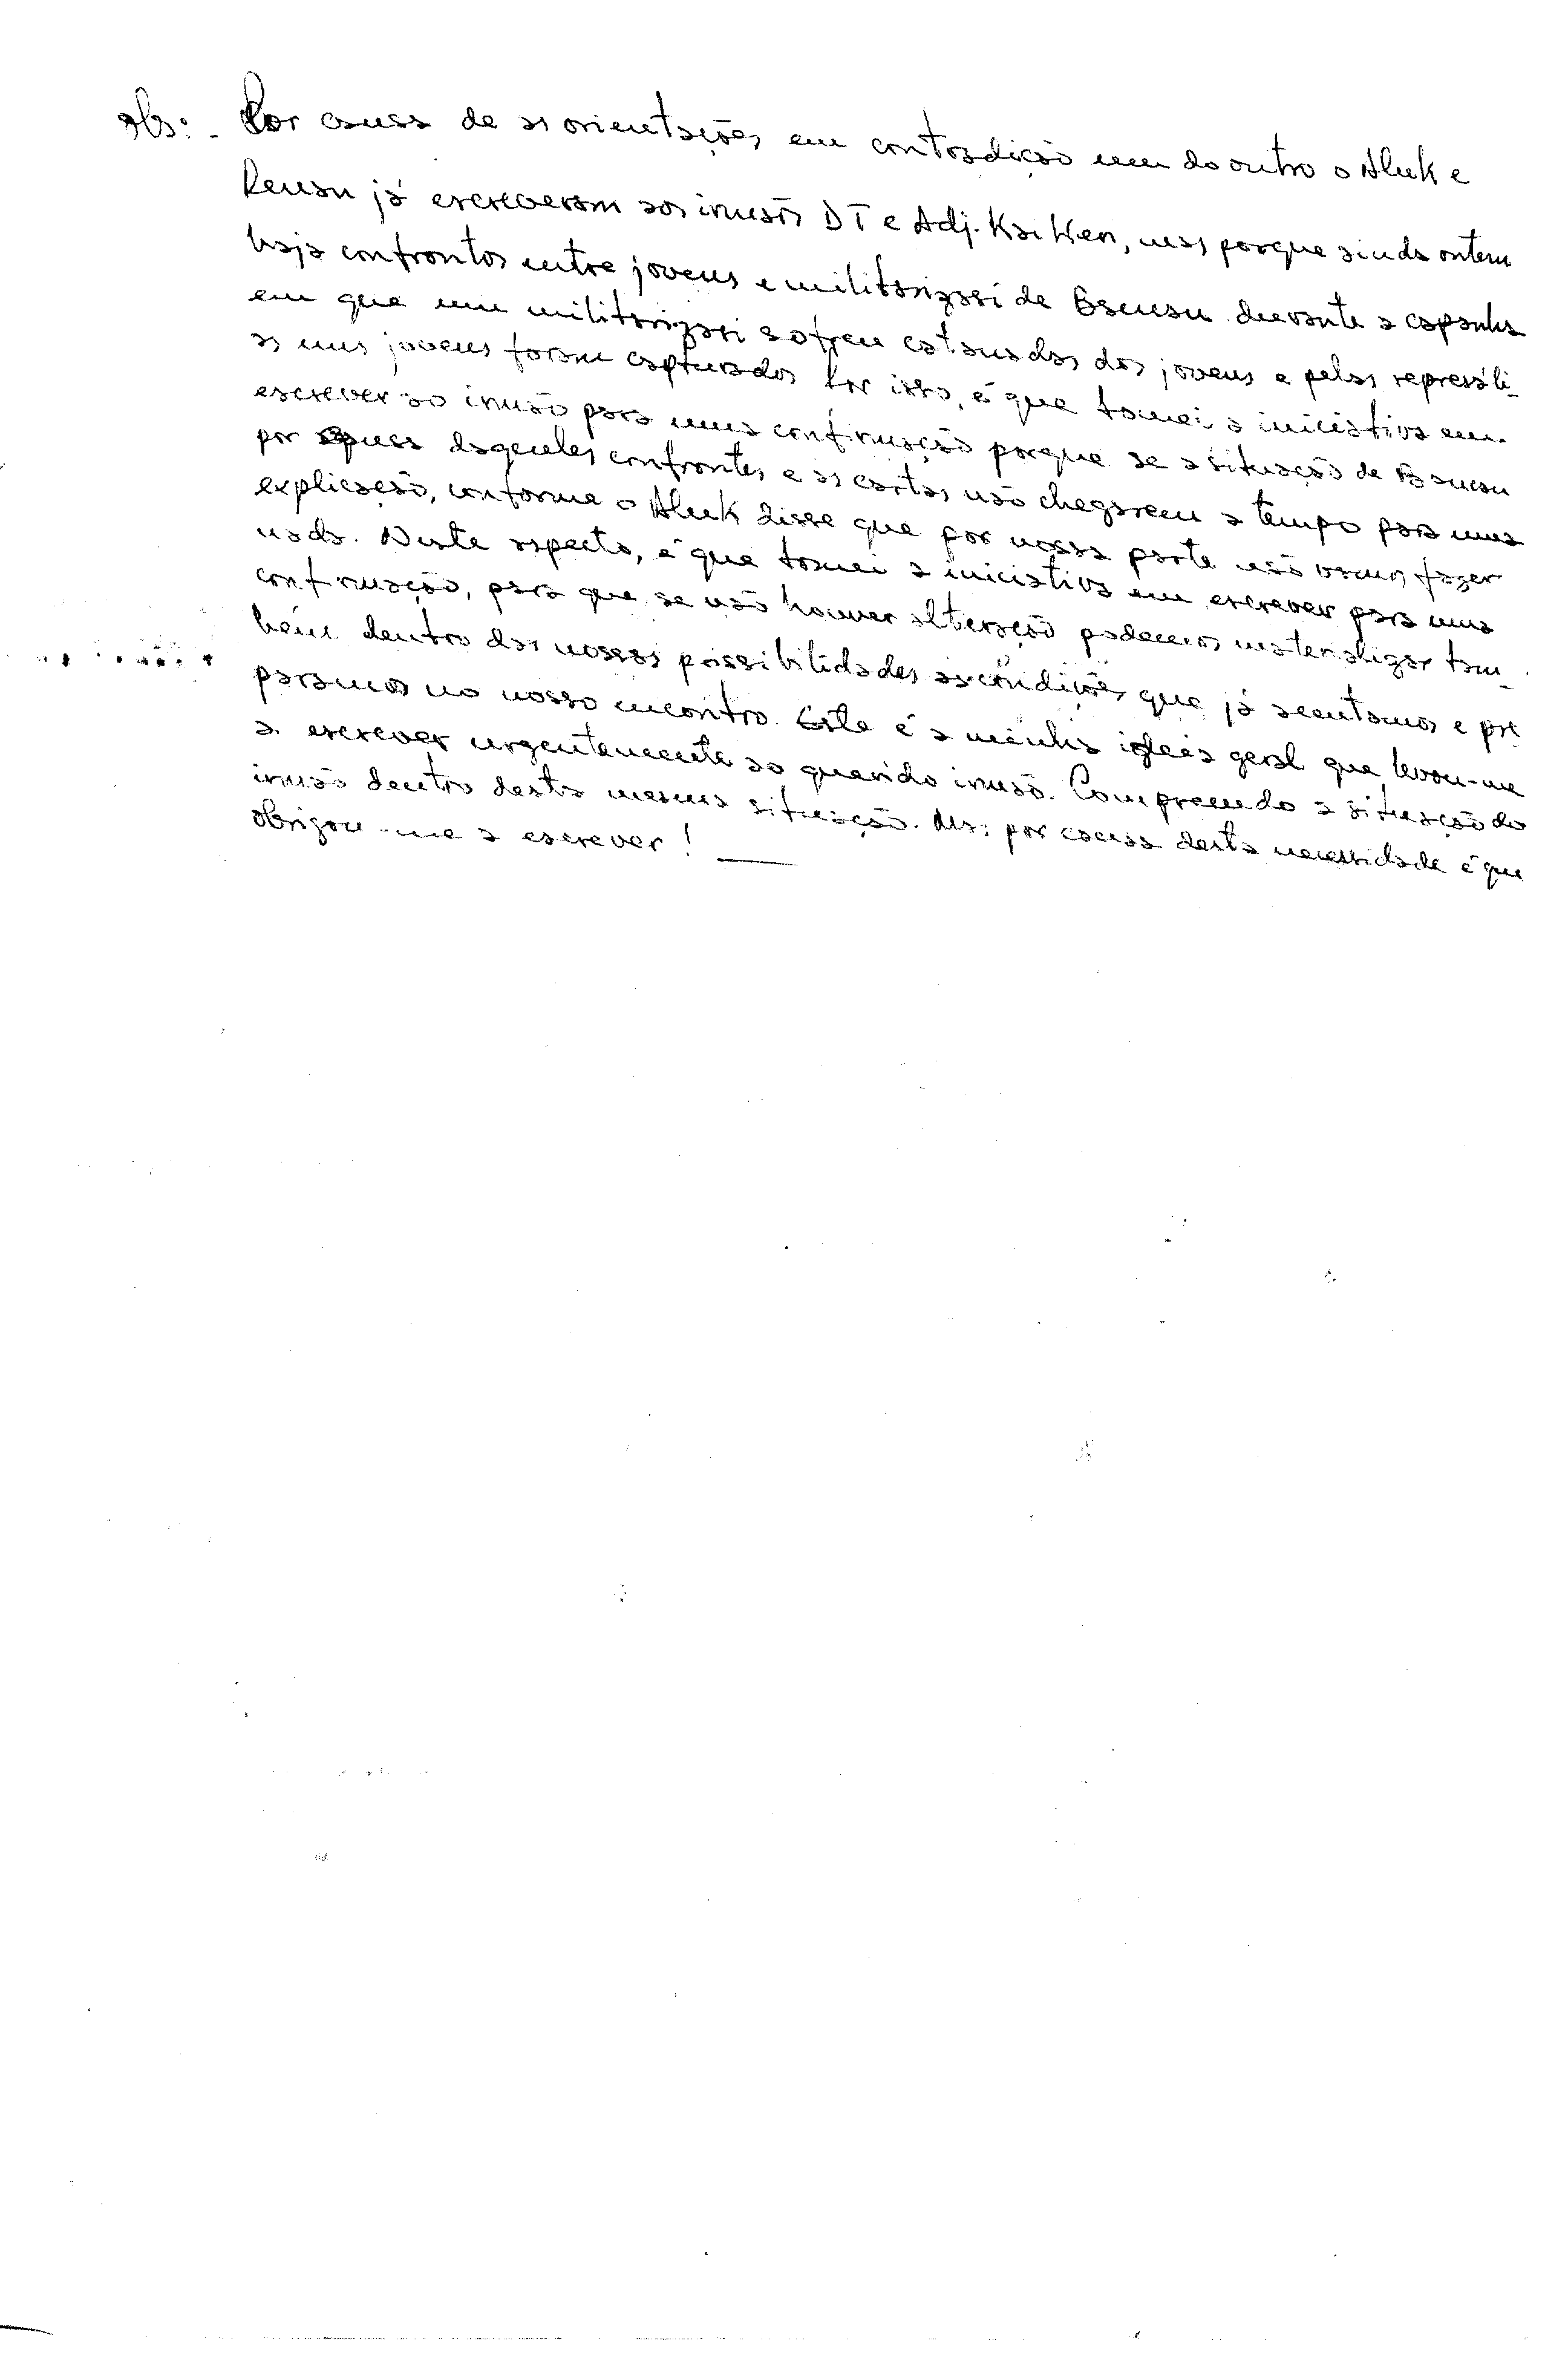 obs:. Por causa de as orientações em contradição um do outro o Aluk e
Renan já escreveram aos irmãos DT e Adj. Kai Ken, mas porque ainda ontem
haja confrontos entre jovens e militarizasi de Baucau durante a capanha
em que um militarizasi sofreu catanadas dos jovens e pelas represáli-
as uns jovens foram capturados por isto, é que tomei a iniciativa em
escrever ao irmão para uma confirmação porque se a situação de Baucau
por causa daqueles confrontos e as cartas não chegarem a tempo para uma
explicação, conforme o Aluk disse que por nossa parte não vamos fazer
nada. Neste aspecto, é que tomei a iniciativa em escrever para uma
confirmação, para que se não houver alteração podemos materializar tam-
bém dentro das nossas possibilidades as condições que já acentamos e pre
paramos no nosso encontro. Este é a minha ideia geral que levou-me
a escrever urgentemente ao querido irmão. Compreendo a situação do
irmão dentro desta mesma situação. Mas por causa desta necessidade é que
obrigou-me a escrever!